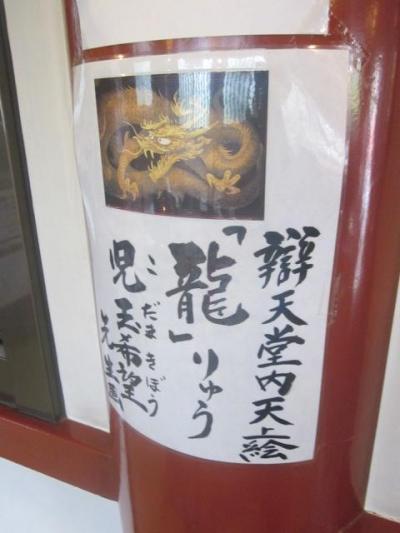 辯天堂内天上絵
「龍」りゅう
児玉希望先生画
こだまきぼう